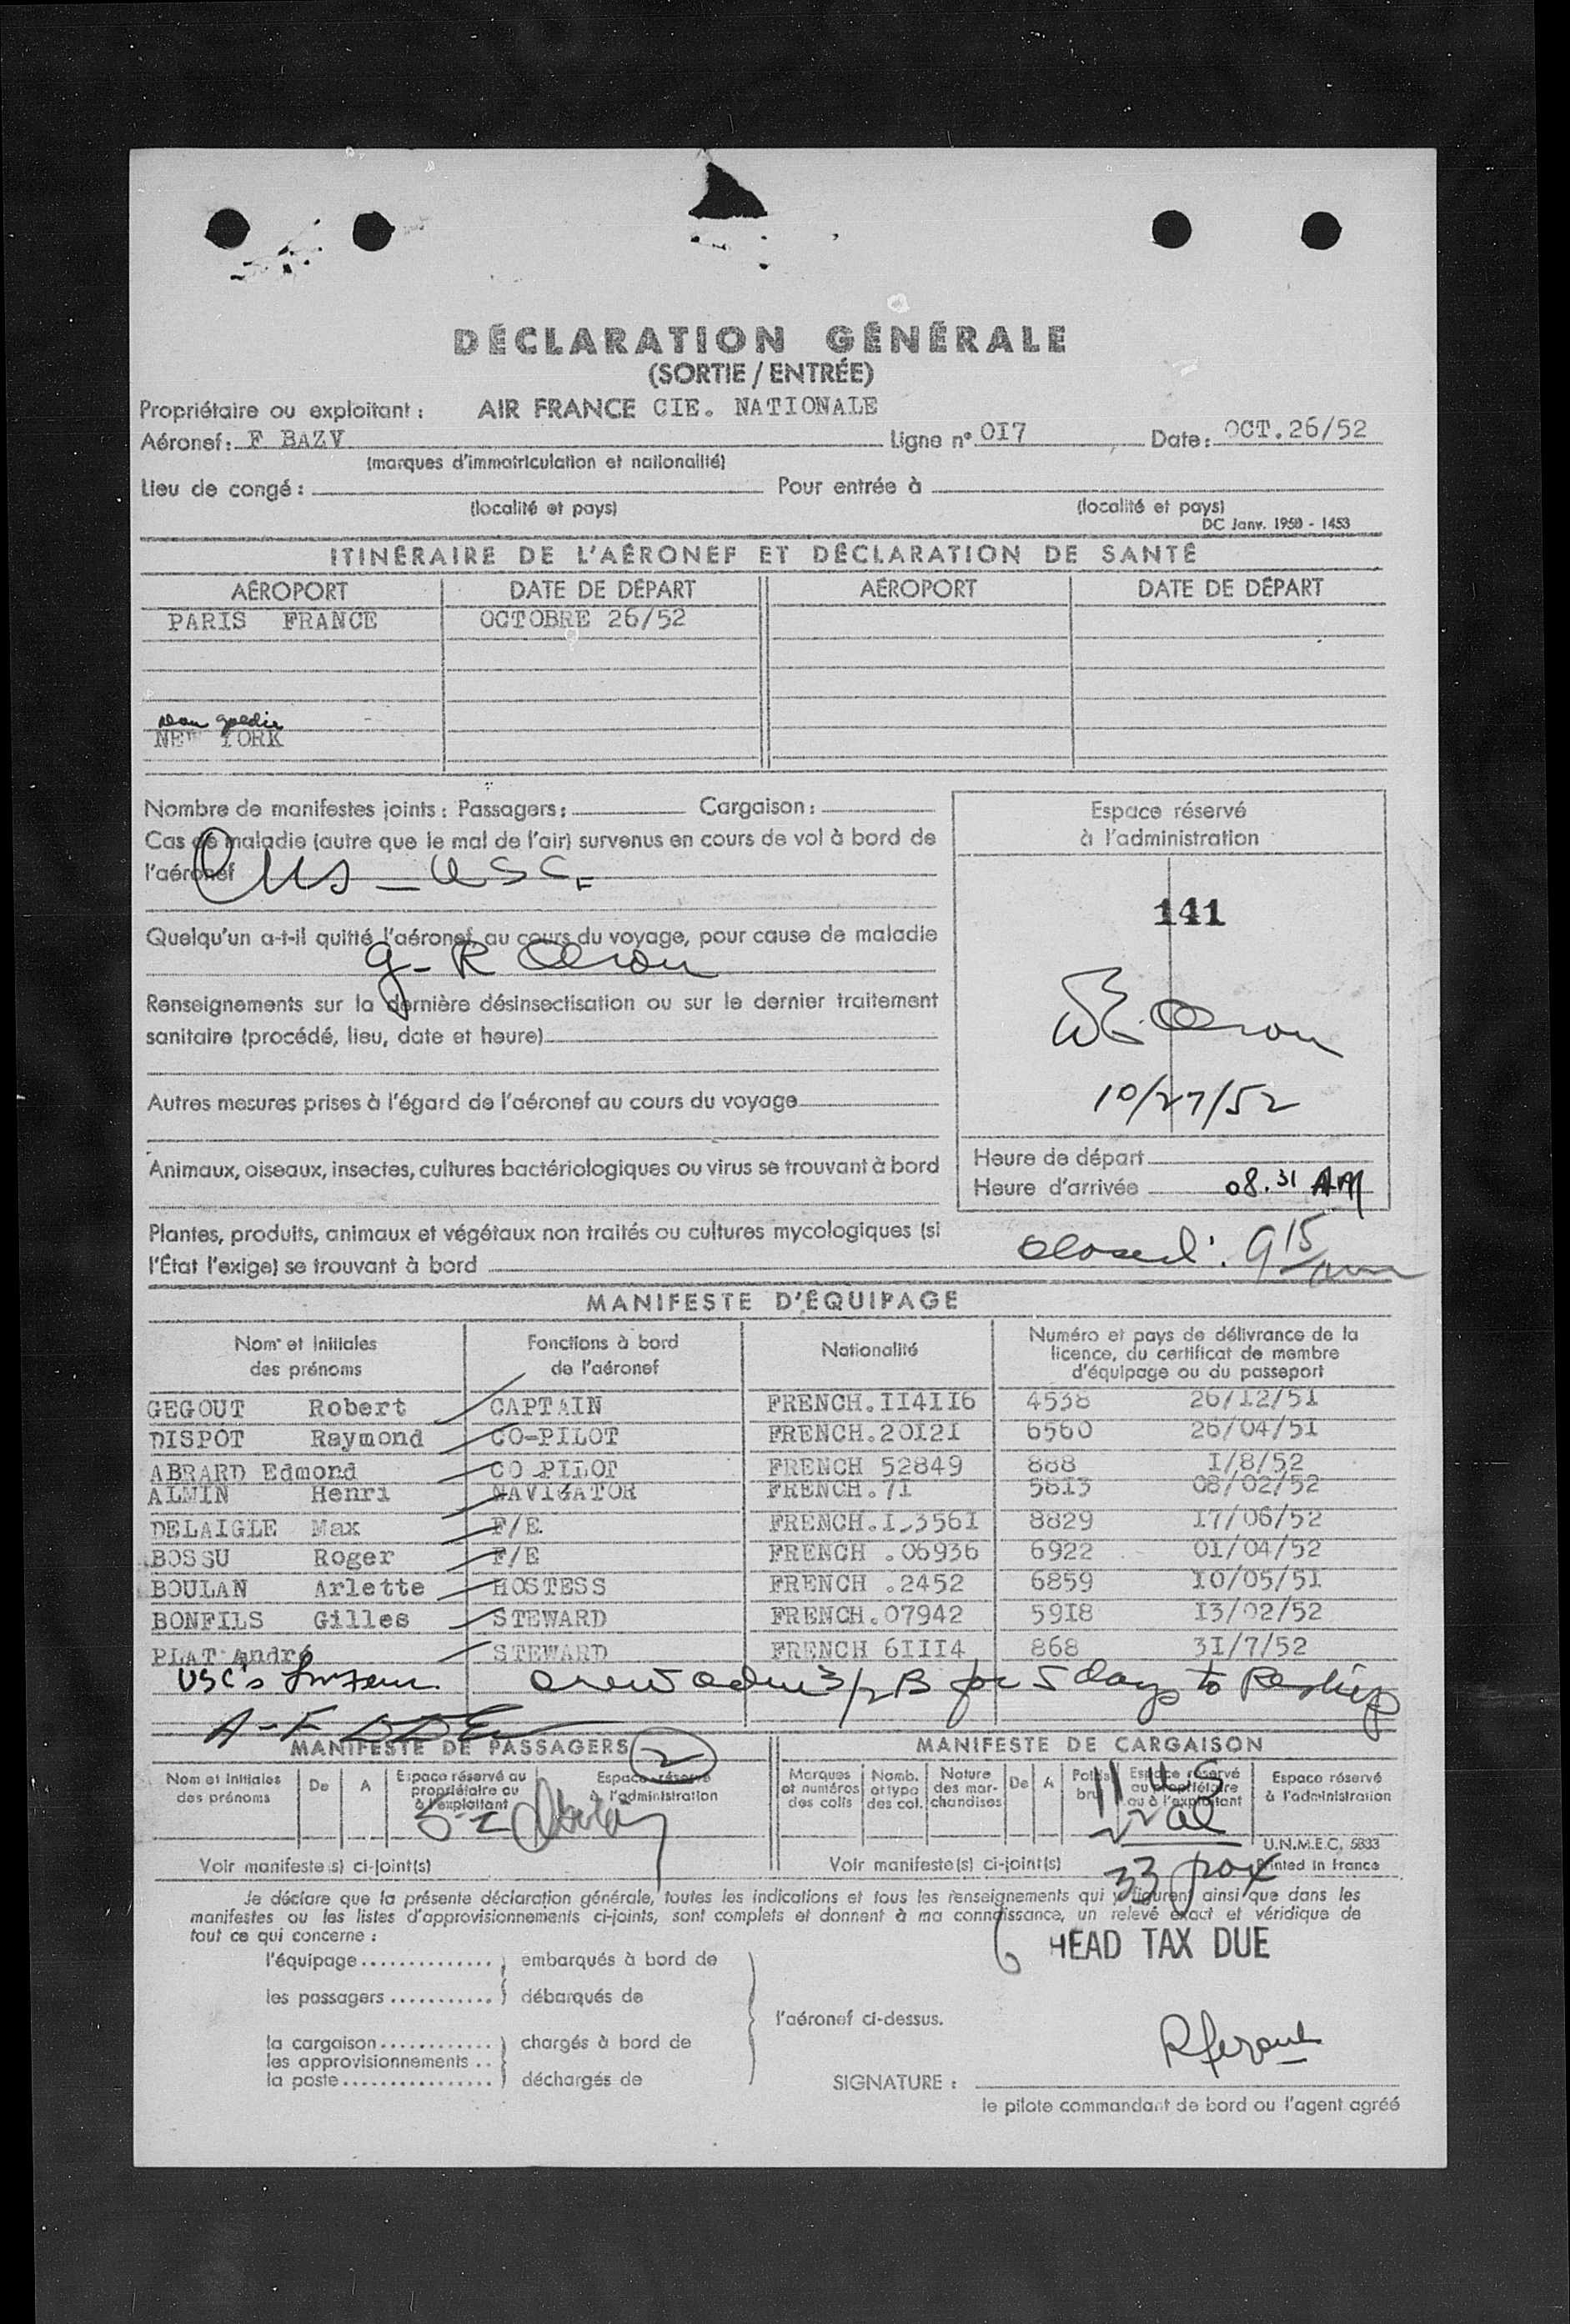 DÉCLARATION GÉNÉRALE
(SORTIE / ENTRÉE)
Propriétaire ou exploitant : AIR FRANCE CIE. NATIONALE
Aéronef: F BAZV Ligne n° OI7 Date: OCT.26/52
(marques d'immatriculation et nationalité)
Lieu de congé : Pour entrée à
(localité et pays) (localité et pays)
DC Janv. 1950 - 1453
ITINÉRAIRE DE L'AÉRONEF ET DÉCLARATION DE SANTÉ
AÉROPORT DATE DE DÉPART AÉROPORT DATE DE DÉPART
PARIS FRANCE OCTOBRE 26/52
NEW YORK
Nombre de manifestes joints : Passagers : Cargaison :
Espace réservé
à l'administration
Cas de maladie (autre que le mal de l'air) survenus en cours de vol à bord de
l'aéronef
141
Quelqu'un a-t-il quitté l'aéronef au cours du voyage, pour cause de maladie
Renseignements sur la dernière désinsectisation ou sur le dernier traitement
sanitaire (procédé, lieu, date et heure)
10/27/52
Autres mesures prises à l'égard de l'aéronef au cours du voyage
Animaux, oiseaux, insectes, cultures bactériologiques ou virus se trouvant à bord
Heure de départ
Heure d'arrivée 08.31 AM
Plantes, produits, animaux et végétaux non traités ou cultures mycologiques (si
l'État l'exige) se trouvant à bord
closed: 9 15/am
MANIFESTE D'ÉQUIPAGE
Nom et initiales des prénoms Fonctions à bord de l'aéronef Nationalité Numéro et pays de délivrance de la licence, du certificat de membre d'équipage ou du passeport
GEGOUT Robert CAPTAIN FRENCH.II4II6 4538 26/12/51
DISPOT Raymond CO-PILOT FRENCH.20I2I 6560 26/04/51
ABRARD Edmond CO PILOT FRENCH 52849 888 I/8/52
ALMIN Henri NAVIGATOR FRENCH.7I 5813 08/02/52
DELAIGLE Max F/E FRENCH.I.356I 8829 I7/06/52
BOSSU Roger F/E FRENCH .06936 6922 OI/04/52
BOULAN Arlette HOSTESS FRENCH .2452 6859 IO/05/5I
BONFILS Gilles STEWARD FRENCH.07942 59I8 I3/02/52
PLAT André STEWARD FRENCH 6III4 868 3I/7/52
USC's crew adm 3/2 B for 5 days to Reship
MANIFESTE DE PASSAGERS 2 MANIFESTE DE CARGAISON
Nom et initiales des prénoms De A Espace réservé au propriétaire ou à l'exploitant Espace réservé à l'administration
Marques et numéros des colis Nomb. et type des col. Nature des marchandises De A Poids brut Espace réservé au propriétaire ou à l'exploitant Espace réservé à l'administration
11 US
22 al
U.N.M.E.C. 5833
Voir manifeste(s) ci-joint(s) Voir manifeste(s) ci-joint(s) Printed in France
33 pax
Je déclare que la présente déclaration générale, toutes les indications et tous les renseignements qui y figurent ainsi que dans les
manifestes ou les listes d'approvisionnements ci-joints, sont complets et donnent à ma connaissance, un relevé exact et véridique de
tout ce qui concerne :
6 HEAD TAX DUE
l'équipage .............. embarqués à bord de
les passagers ........... débarqués de
l'aéronef ci-dessus.
la cargaison ............ chargés à bord de
les approvisionnements ..
la poste ................ déchargés de
SIGNATURE :
le pilote commandant de bord ou l'agent agréé